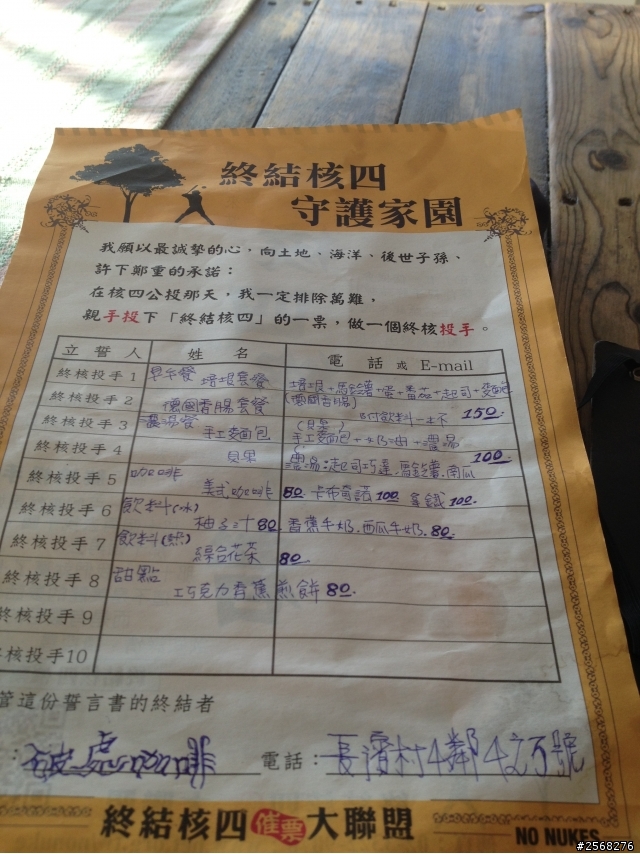 終結核四
守護家園
我願以最誠摯的心，向土地、海洋、後世子孫、
許下鄭重的承諾：
在核四公投那天，我一定排除萬難，
親手投下「終結核四」的一票，做一個終核投手。
立誓人 姓名 電話 或 E-mail
終核投手1 早午餐 培根套餐 培根+馬鈴薯+蛋+番茄+起司+麵包
終核投手2 德國香腸套餐 (德國香腸) 附飲料一杯 150.
終核投手3 濃湯餐 手工麵包 (貝果) 手工麵包+奶油+濃湯
終核投手4 貝果 濃湯:起司巧達.馬鈴薯.南瓜 100.
終核投手5 咖啡 美式咖啡 80. 卡布奇諾 100. 拿鐵 100.
終核投手6 飲料(冰) 柚子汁 80. 香蕉牛奶.西瓜牛奶. 80.
終核投手7 飲料(熱) 綜合花茶 80.
終核投手8 甜點 巧克力香蕉煎餅 80.
終核投手9
核投手10
管這份誓言書的終結者
咖啡 電話：長濱村4鄰4之 號
終結核四催票大聯盟
NO NUKES
#2568276